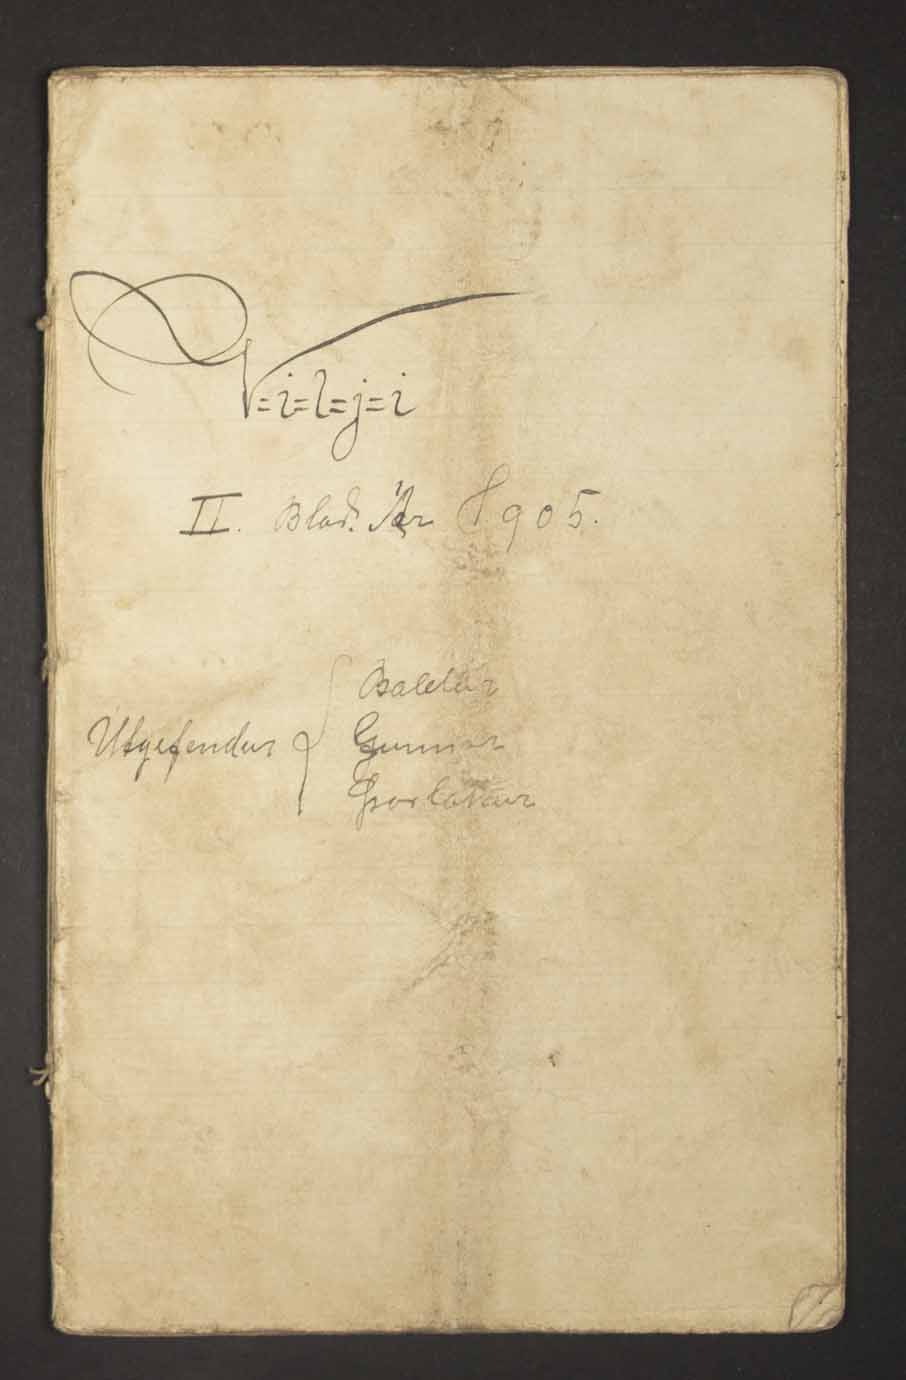 V=i=l=j=i
II. Blað. Ár 1905.
Utgefendur
Baldur
Gunnar
Þorlákur